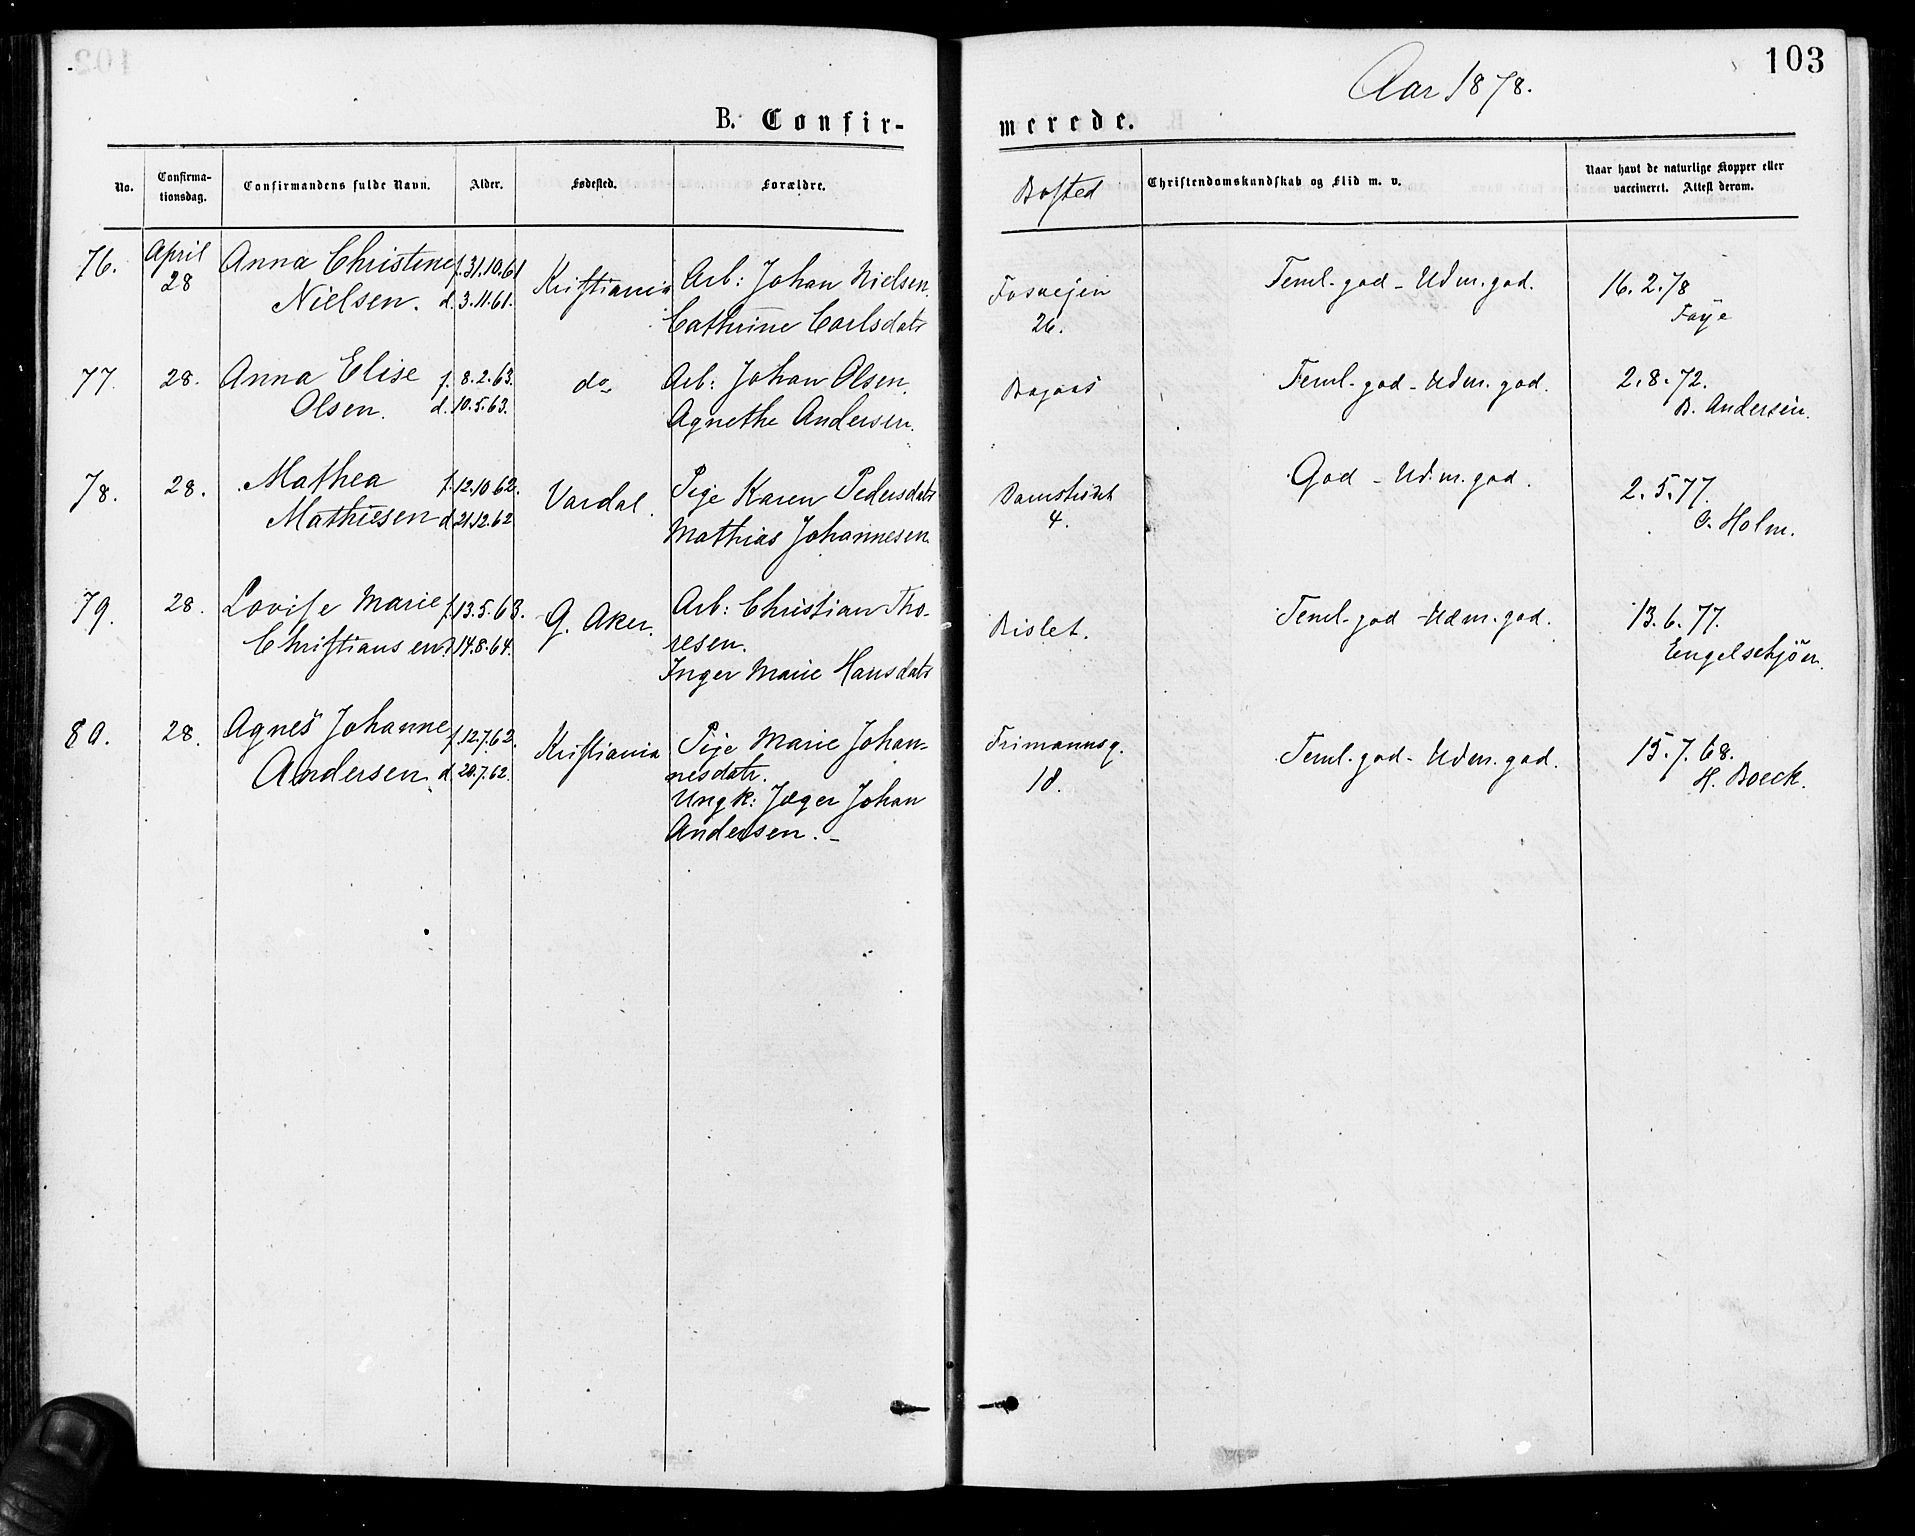 103
Aar 1878.
B. Confir-
merede.
No.
Confirma-
tionsdag.
Confirmandens fulde Navn.
Alder.
Fødested.
Forældre.
Bosted
Christendomskundskab og Flid m. v.
Naar havt de naturlige Kopper eller
vaccineret. Attest derom.
76. April 28 Anna Christine f. 31.10.61 Kristiania Arb: Johan Nielsen. Fosvejen Teml. god - Udm. god. 16.2.78
Nielsen. d. 3.11.61. Cathrine Carlsdatr 26. Faye
77. 28. Anna Elise f. 8.2.63. do Arb: Johan Olsen. Bagaas Teml. god - Udm. god. 2.8.72.
Olsen. d. 10.5.63. Agnethe Andersen. B. Andersen.
78. 28. Mathea f. 12.10.62. Vardal. Pige Karen Pedersdatr Damstrædet God - Udm. god. 2.5.77.
Mathiesen d. 21.12.62 Mathias Johannesen. 4. C. Holm.
79. 28. Lovise Marie f. 13.5.63. G. Aker. Arb: Christian Tho- Bislet. Teml. god - Udm. god. 13.6.77.
Christiansen d. 14.8.64. resen. Engelschjön.
Inger Marie Hansdatr
80. 28. Agnes Johanne f. 12.7.62. Kristiania Pige Marie Johan- Frimannsg. Teml. god - Udm. god. 15.7.68.
Andersen. d. 20.7.62. nesdatr. 18. H. Boeck.
Ungk: Jæger Johan
Andersen. -